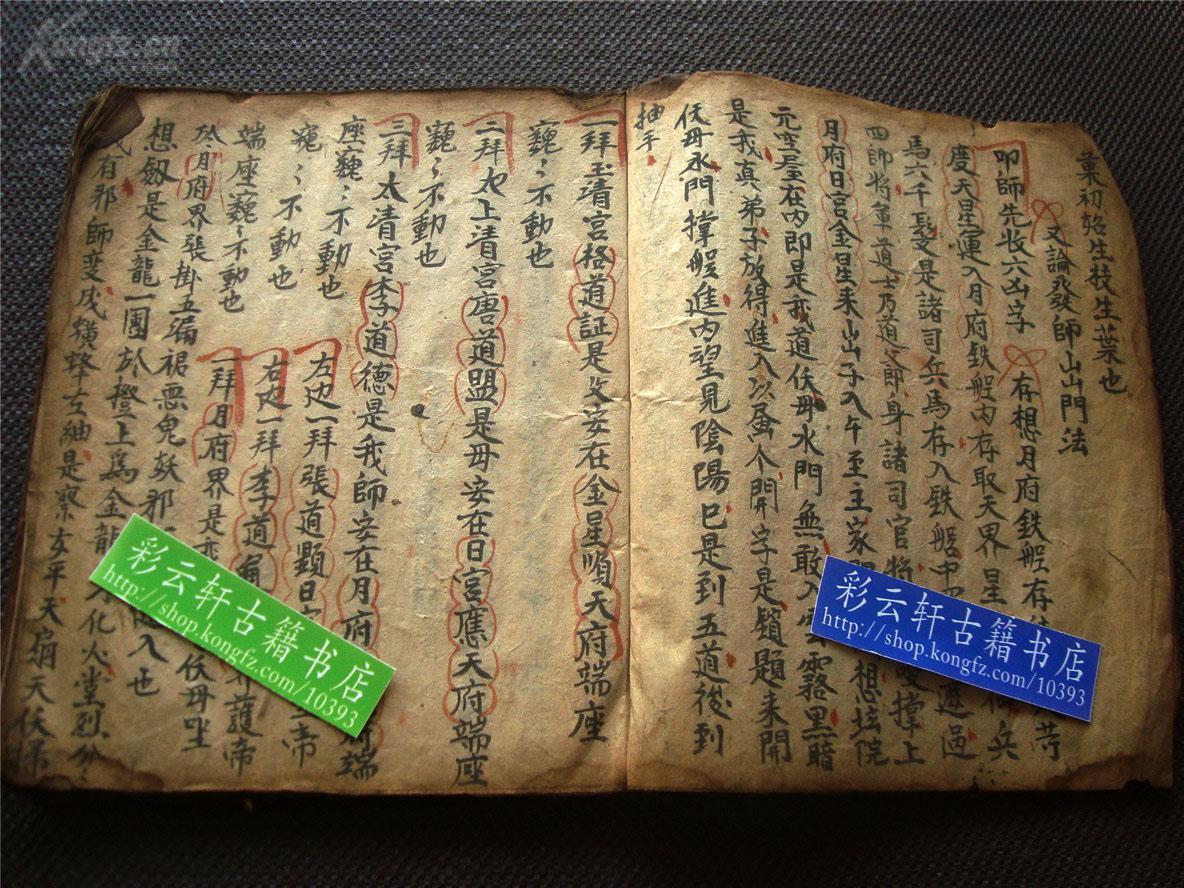 Kongfz.cn
業初始生枝生葉也
又論發師山山門法
叩師先收六凶字 存想月府鉄船存
度天星運入月府鉄船内存取天界星 兵
馬六千是諸司兵馬存入鉄船中 邊過
四師將軍道士乃道爺身諸司官將 撑上
月府日宫金星来山子入午至主家 想法院
元空屋在内即是我道伏母水門無敢入 霧黒暗
是我真弟子放得進入以蛋个開字是題来開
伏母水門撑船進内望見陰陽已是到五道後到
抽手
一拜玉清宫格道証是父安在金星順天府端座
巍々不動也
二拜尢上清宫唐道盟是母安在日宫應天府端座
巍々不動也
三拜太清宫李道德是我師安在月府 端
座巍々不動也
左边一拜張道題日 帝
巍々不動也
右边一拜李道 護帝
端座巍々不動也
一拜月府界是 伏母坐
於月府界張掛五漏裙悪鬼妖邪 入也
想劔是金龍一團於橙上爲金龍 化火堂烈分々
我有邪師变成横蜂左袖是察右平天扇天伏
彩云轩古籍书店
http://shop.kongfz.com/10393
彩云轩古籍书店
http://shop.kongfz.com/10393